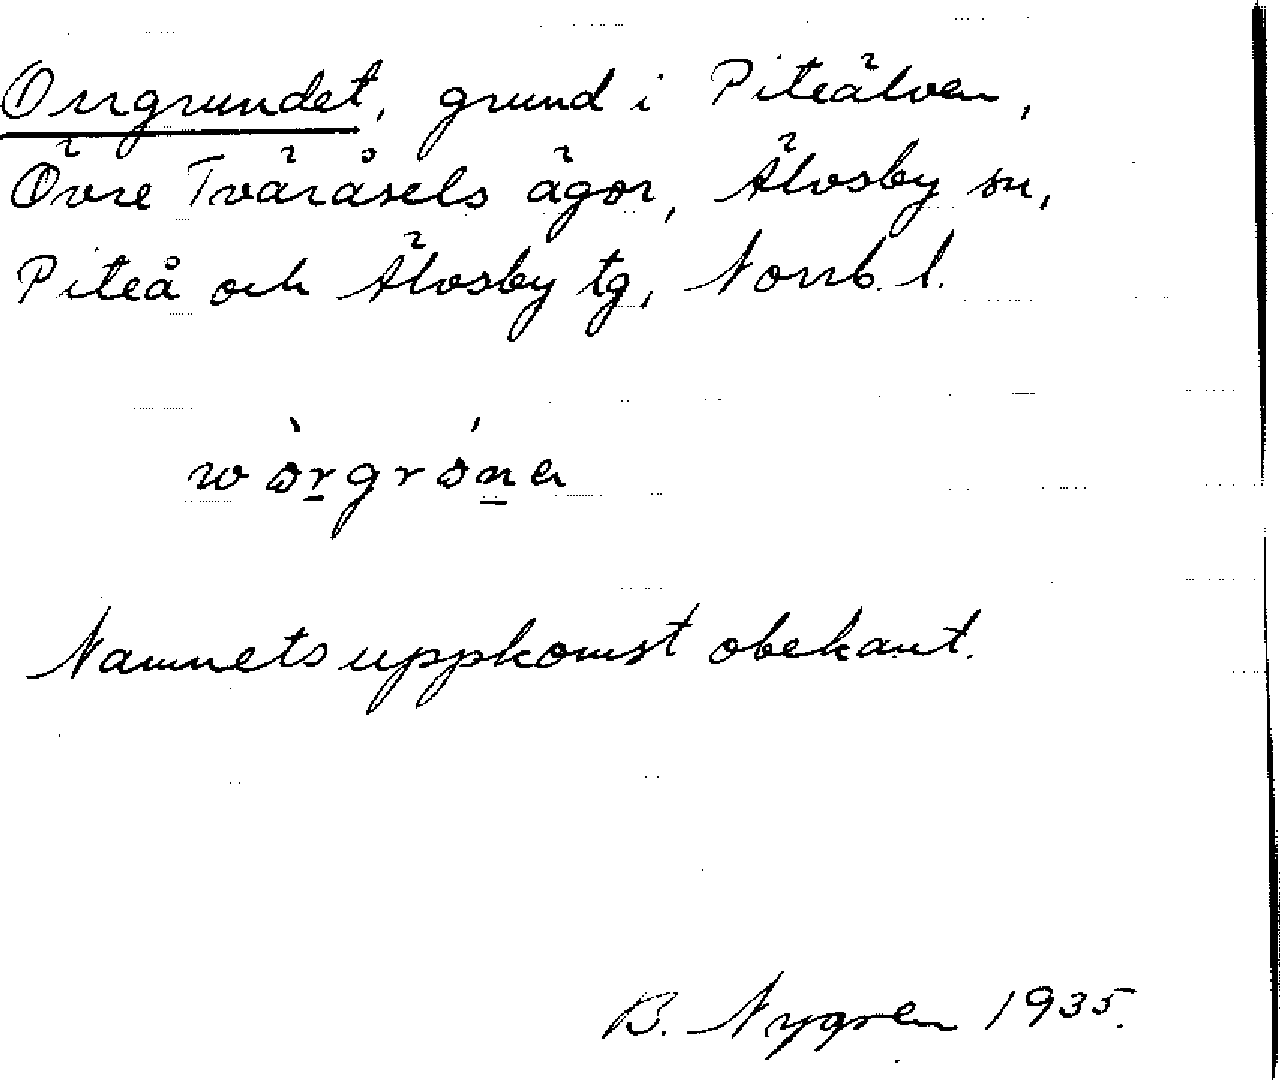 Orrgrundet, grund i Piteälven,
Övre Tväråsels ägor, Älvsby sn,
Piteå och Älvsby tg, Norrb. l.
wòrgróna
Namnets uppkomst obekant.
B. Nygren 1935.